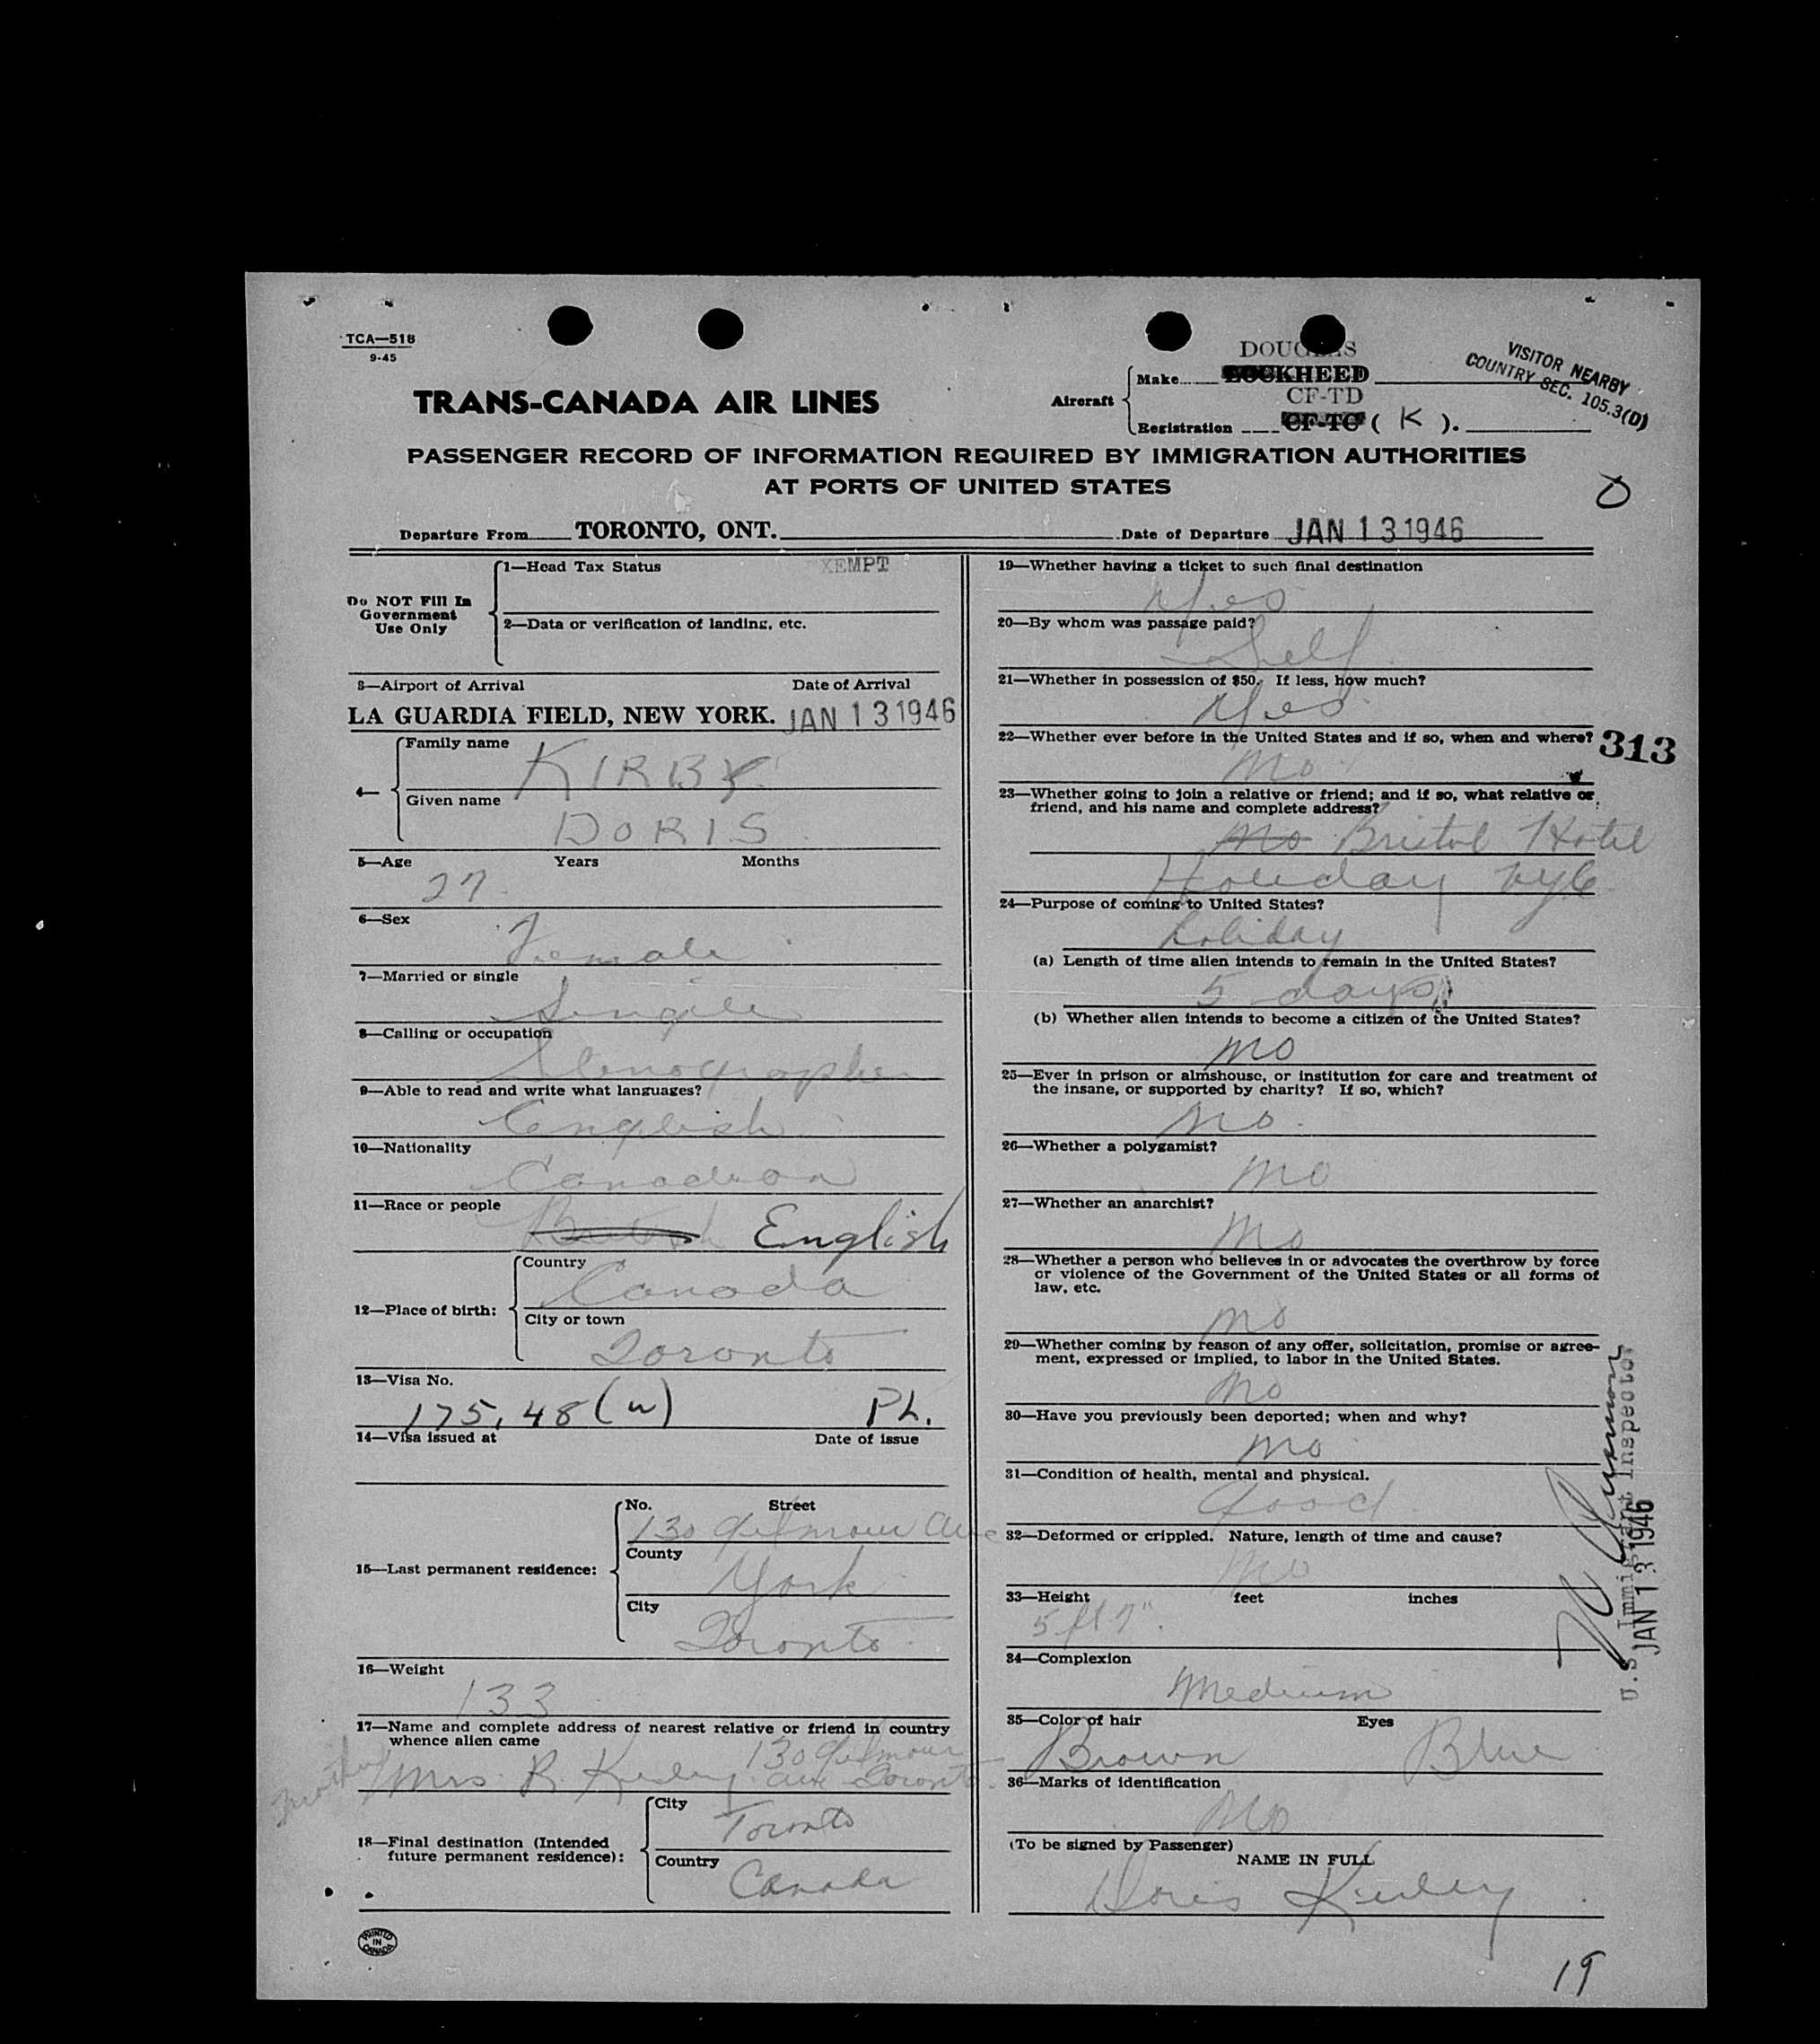 TCA—518
9-45
TRANS-CANADA AIR LINES
Aircraft
Make
DOUGLAS
LOCKHEED
CF-TD
Registration CF-TC ( K ).
VISITOR NEARBY
COUNTRY SEC. 105.3(D)
PASSENGER RECORD OF INFORMATION REQUIRED BY IMMIGRATION AUTHORITIES
AT PORTS OF UNITED STATES
Departure From TORONTO, ONT. Date of Departure JAN 13 1946
Do NOT Fill In
Government
Use Only
1—Head Tax Status XEMPT
2—Data or verification of landing, etc.
3—Airport of Arrival Date of Arrival
LA GUARDIA FIELD, NEW YORK. JAN 13 1946
4—
Family name KIRBY
Given name DORIS
5—Age Years Months
27
6—Sex
Female
7—Married or single
Single
8—Calling or occupation
Stenographer
9—Able to read and write what languages?
English
10—Nationality
Canadian
11—Race or people
British English
12—Place of birth:
Country
Canada
City or town
Toronto
13—Visa No.
175.48 (w) Ph.
14—Visa issued at Date of issue
15—Last permanent residence:
No. Street
130 Gilmour Ave
County
York
City
Toronto
16—Weight
133
17—Name and complete address of nearest relative or friend in country
whence alien came
130 Gilmour
mother Mrs. R. Kirby Ave Toronto
18—Final destination (Intended
future permanent residence):
City
Toronto
Country
Canada
PRINTED
IN
CANADA
19—Whether having a ticket to such final destination
Yes
20—By whom was passage paid?
Self
21—Whether in possession of $50. If less, how much?
Yes
22—Whether ever before in the United States and if so, when and where?
313
No
23—Whether going to join a relative or friend; and if so, what relative or
friend, and his name and complete address?
No Bristol Hotel
Holiday NYC
24—Purpose of coming to United States?
holiday
(a) Length of time alien intends to remain in the United States?
5 days
(b) Whether alien intends to become a citizen of the United States?
No
25—Ever in prison or almshouse, or institution for care and treatment of
the insane, or supported by charity? If so, which?
No
26—Whether a polygamist?
No
27—Whether an anarchist?
No
28—Whether a person who believes in or advocates the overthrow by force
or violence of the Government of the United States or all forms of
law, etc.
No
29—Whether coming by reason of any offer, solicitation, promise or agree-
ment, expressed or implied, to labor in the United States.
No
30—Have you previously been deported; when and why?
No
31—Condition of health, mental and physical.
Good
32—Deformed or crippled. Nature, length of time and cause?
No
33—Height feet inches
5 ft 7"
34—Complexion
Medium
35—Color of hair Eyes
Brown Blue
36—Marks of identification
No
(To be signed by Passenger)
NAME IN FULL
Doris Kirby
U.S. Immigrant Inspector
JAN 13 1946
19